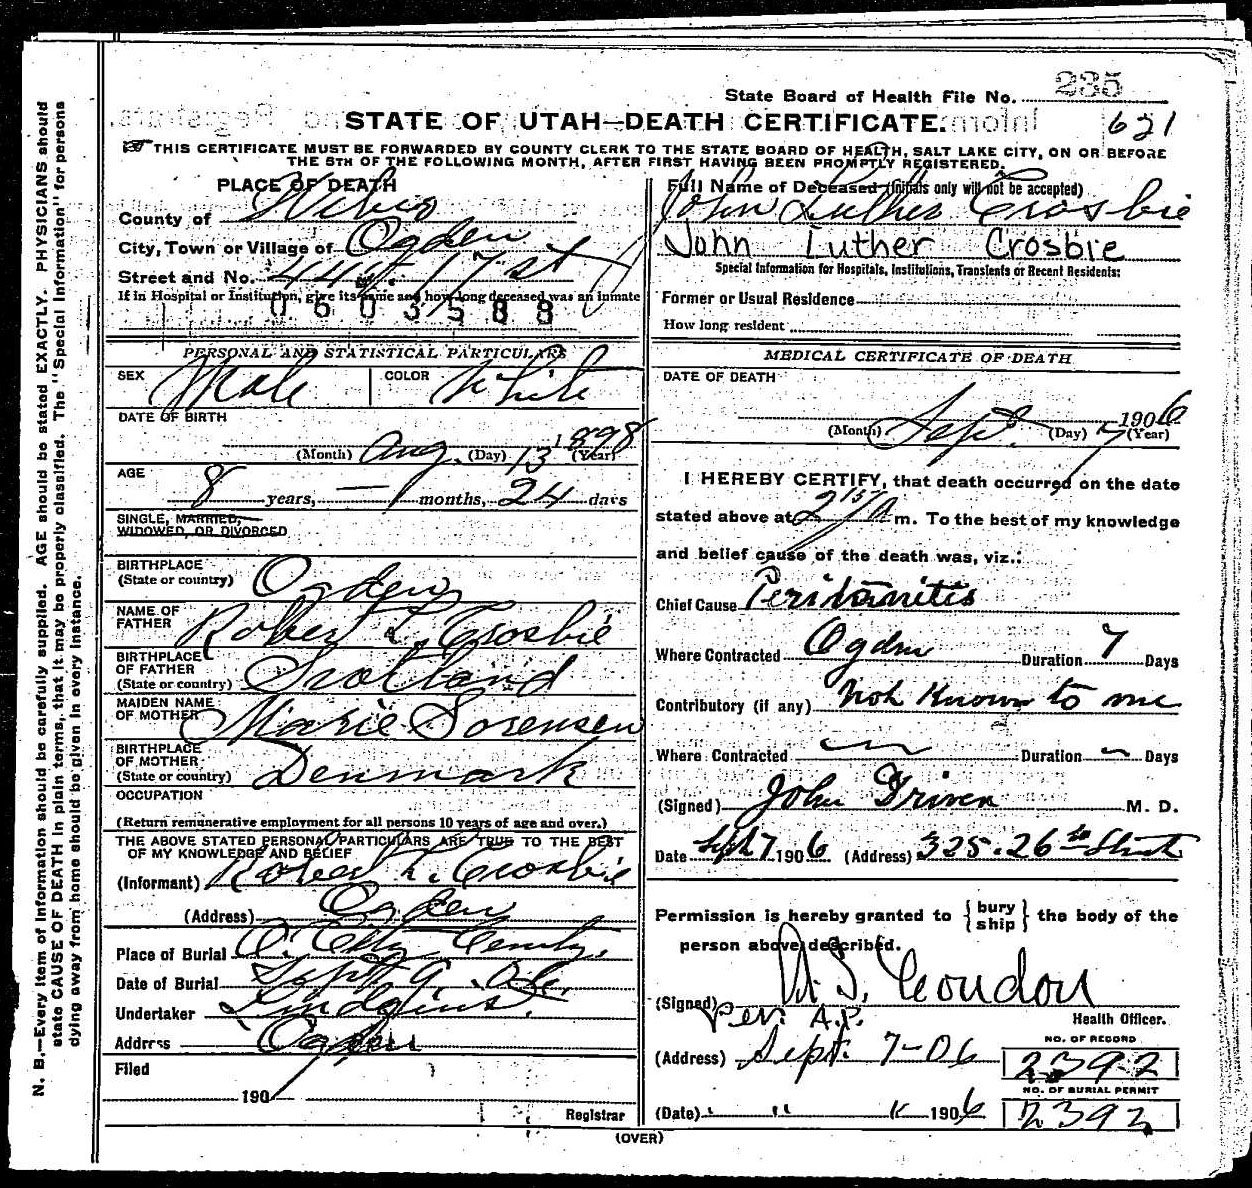 State Board of Health File No. 235
STATE OF UTAH—DEATH CERTIFICATE.
621
THIS CERTIFICATE MUST BE FORWARDED BY COUNTY CLERK TO THE STATE BOARD OF HEALTH, SALT LAKE CITY, ON OR BEFORE
THE 5TH OF THE FOLLOWING MONTH, AFTER FIRST HAVING BEEN PROMPTLY REGISTERED.
N. B.—Every item of information should be carefully supplied. AGE should be stated EXACTLY. PHYSICIANS should
state CAUSE OF DEATH in plain terms, that it may be properly classified. The "Special Information" for persons
dying away from home should be given in every instance.
PLACE OF DEATH
County of Weber
City, Town or Village of Ogden
Street and No. 17 st
If in Hospital or Institution, give its name and how long deceased was an inmate
0603588
PERSONAL AND STATISTICAL PARTICULARS
SEX Male COLOR White
DATE OF BIRTH
(Month) Aug. (Day) 13 1898 (Year)
AGE
8 years, — months, 24 days
SINGLE, MARRIED,
WIDOWED, OR DIVORCED
BIRTHPLACE
(State or country) Ogden
NAME OF
FATHER Robert L. Crosbie
BIRTHPLACE
OF FATHER
(State or country) Scotland
MAIDEN NAME
OF MOTHER Marie Sorensen
BIRTHPLACE
OF MOTHER
(State or country) Denmark
OCCUPATION
(Return remunerative employment for all persons 10 years of age and over.)
THE ABOVE STATED PERSONAL PARTICULARS ARE TRUE TO THE BEST
OF MY KNOWLEDGE AND BELIEF
(Informant) Robert L. Crosbie
(Address) Ogden
Place of Burial O. City Cemty.
Date of Burial Sept 9. 06.
Undertaker
Address Ogden
Filed
190
Registrar
Full Name of Deceased (Initials only will not be accepted)
John Luther Crosbie
John Luther Crosbie
Special Information for Hospitals, Institutions, Transients or Recent Residents:
Former or Usual Residence
How long resident
MEDICAL CERTIFICATE OF DEATH
DATE OF DEATH
(Month) Sept (Day) 7 1906 (Year)
I HEREBY CERTIFY, that death occurred on the date
stated above at 2 15 A m. To the best of my knowledge
and belief cause of the death was, viz.:
Chief Cause Peritanitis
Where Contracted Ogden Duration 7 Days
Contributory (if any) Not Known to me
Where Contracted — Duration — Days
(Signed) John Driver M. D.
Date Sept 7 1906 (Address) 325. 26th Street
Permission is hereby granted to {bury ship} the body of the
person above described.
(Signed) Condon
Per. A.P. Health Officer.
(Address) Sept. 7-06
NO. OF RECORD
2392
NO. OF BURIAL PERMIT
(Date) " " " 1906 2392
(OVER)